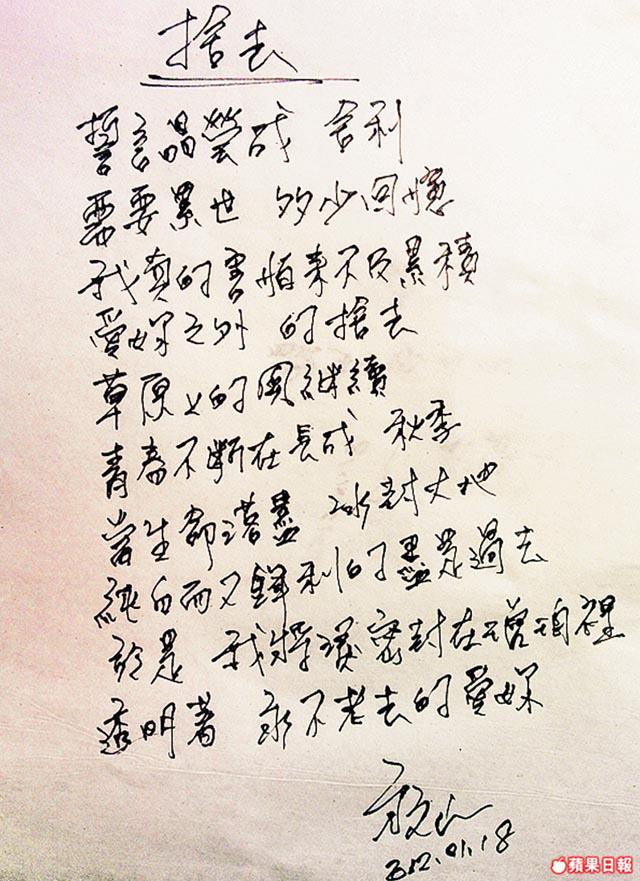 捨去
誓言晶瑩成 舍利
需要累世 多少回憶
我真的害怕來不及累積
愛妳之外 的捨去
草原上的風繼續
青春不斷在長成 秋季
當生命落盡 冰封大地
純白而又鋒利的盡是過去
於是 我將淚密封在 裡
透明著 永不老去的愛妳
2012.01.18
蘋果日報